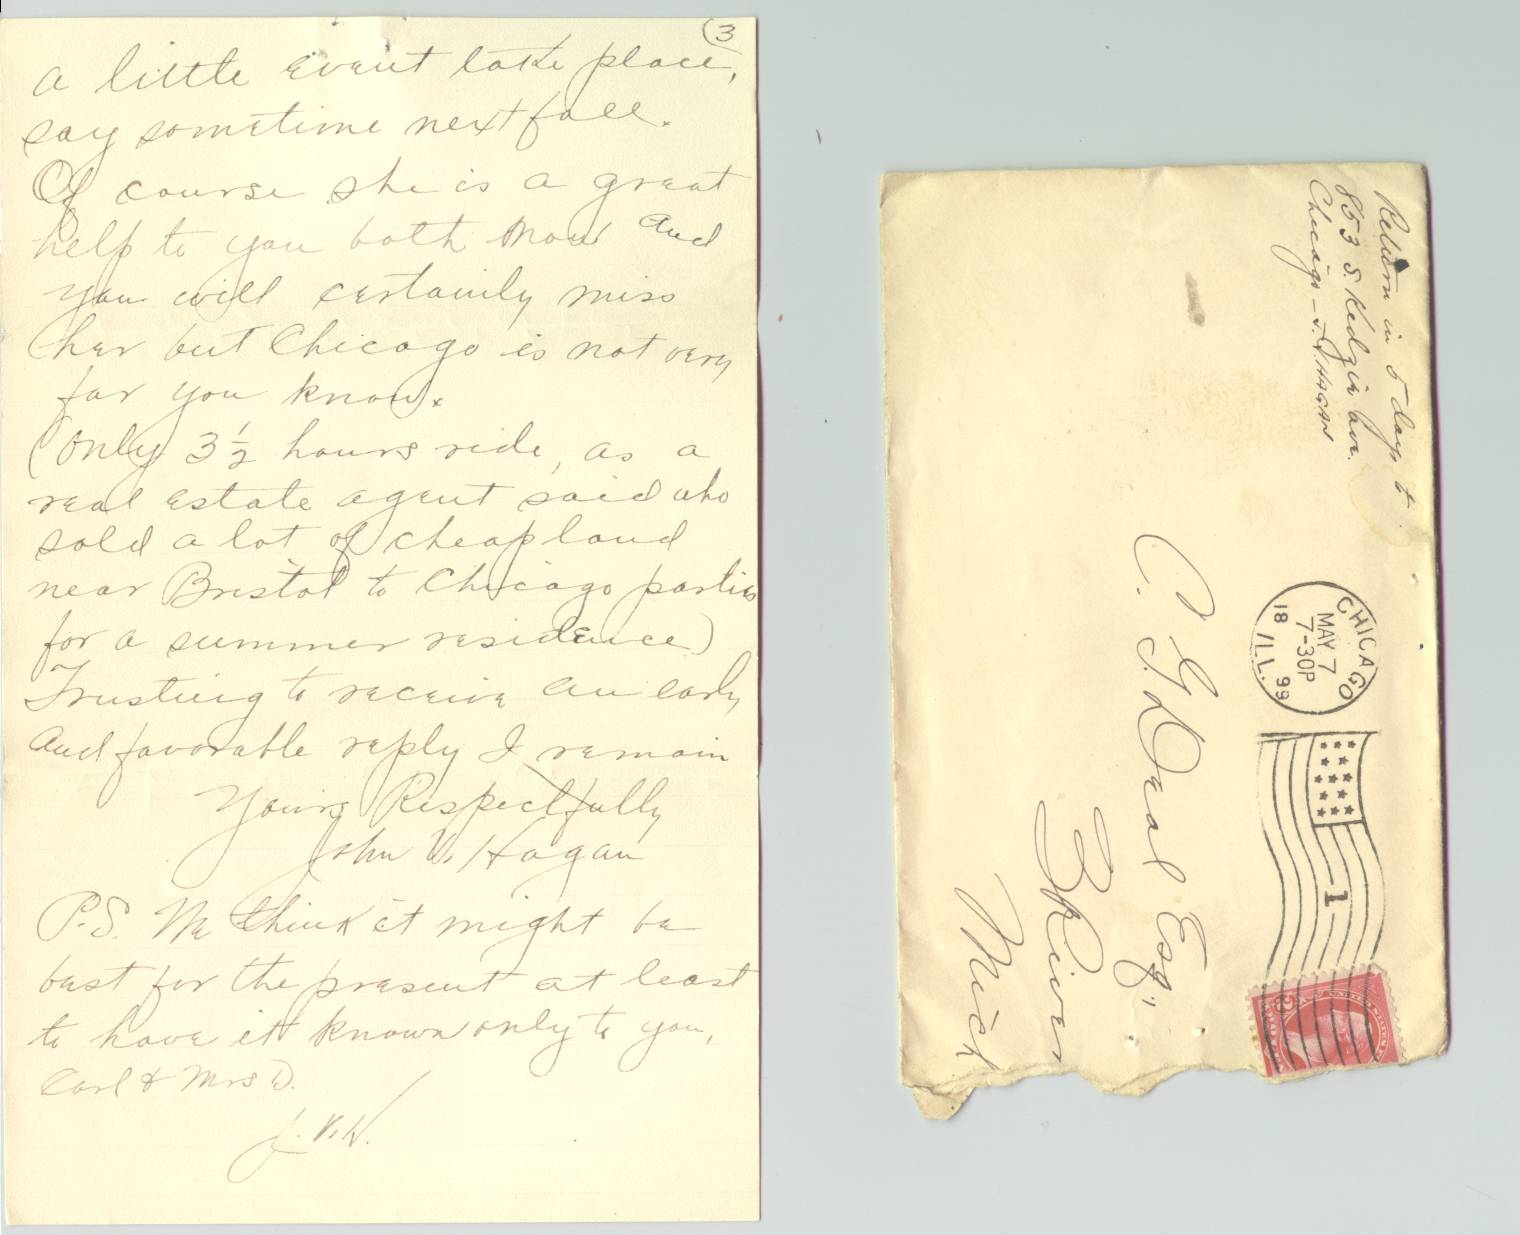 (3
a little event take place,
say sometime next fall.
Of course she is a great
help to you both now and
you will certainly miss
her but Chicago is not very
far you know.
(Only 3 1/2 hours ride, as a
real estate agent said who
sold a lot of cheap land
near Bristol to Chicago parties
for a summer residence)
Trusting to receive an early
and favorable reply I remain
Yours Respectfully
John V. Hogan
P.S. We think it might be
best for the present at least
to have it known only to you,
Carl & Mrs D.
J.V.H.
Return in 5 days to
853 S. Kedzie ave.
Chicago - J.V. HAGAN
CHICAGO
MAY 7
7-30P
18 99
ILL.
1
C. G. Deal Esq.,
3 Rivers
Mich